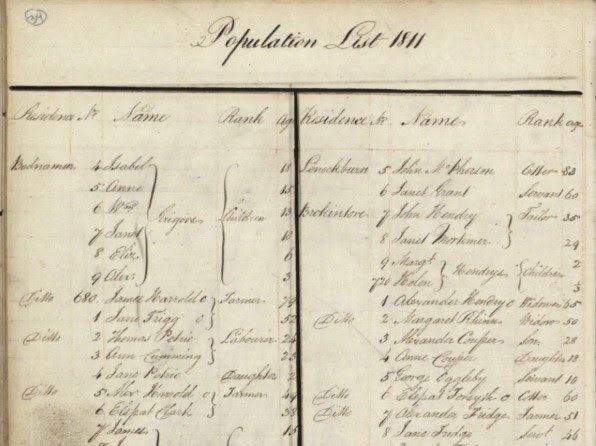 Population List 1811
Residence No. Name Rank age
4 Isabel 18
5 Anne 15
6 Wm. Grigors Children 13
7 Janet 10
8 Eliz. 6
9 Alexr. 3
Ditto 680 James Harrold Farmer
1 Jane Frigg 52
Ditto 2 Thomas Petrie Labourer
3 Ann Cumming 25
4 Jane Petrie Daughter 2
Ditto 5 Alexr. Harrold Farmer
6 Elspat Clark 38
7 James 15
Residence No. Name Rank age
5 John McPherson Cotter 83
6 Janet Grant Servant 60
7 John Hendry Tailor 35
8 Janet Mortimer 29
9 Margt. Hendrys Children 2
720 Helen 3
1 Alexander Hendry Widower 65
Ditto 2 Margaret Widow 50
3 Alexander Couper Son 28
4 Anne Couper Daughter 18
5 George Servant 10
Ditto 6 Elspat Forsyth Cotter 60
Ditto 7 Alexander Fridge Farmer 51
8 Jane Fridge Servt 46